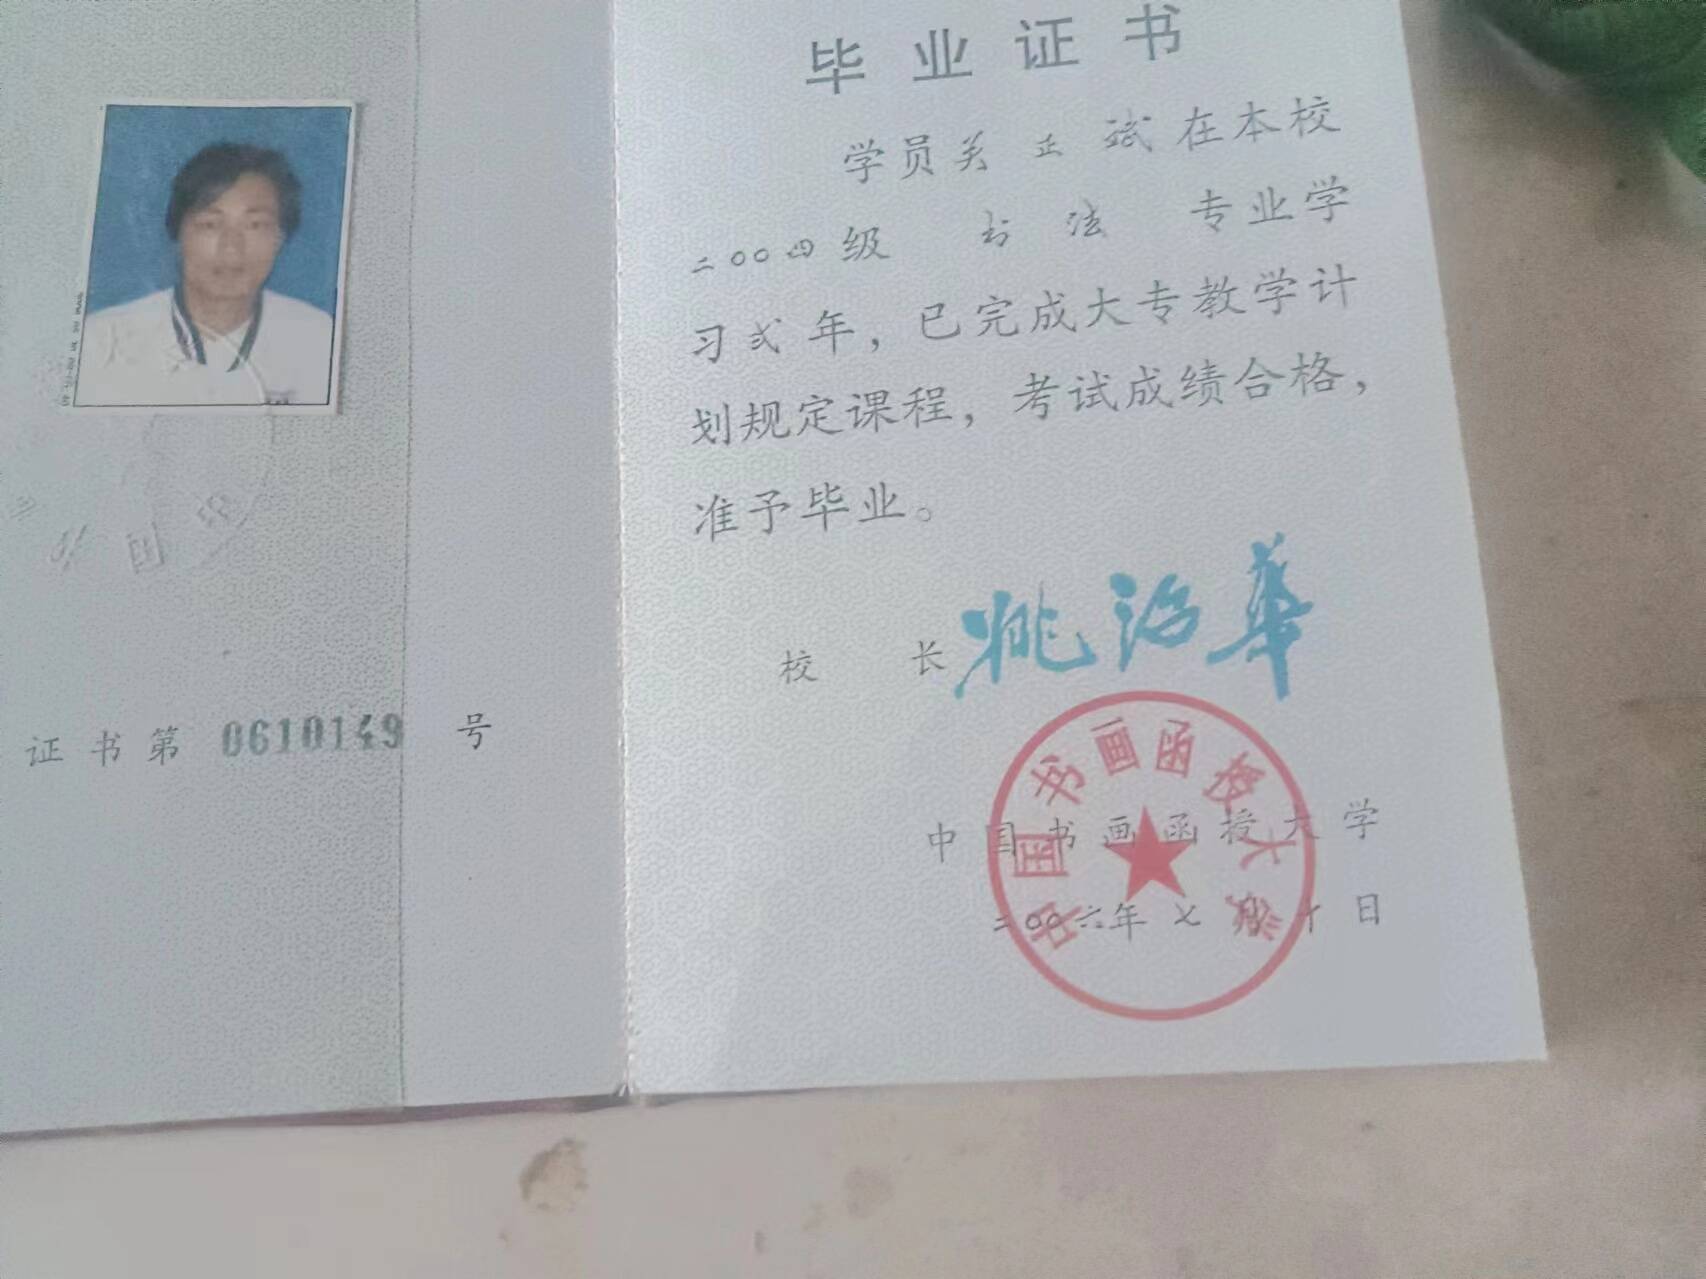 毕业证书
学员关正斌在本校
二〇〇四级 书法 专业学
习弍年，已完成大专教学计
划规定课程，考试成绩合格，
准予毕业。
校 长 姚治华
中国书画函授大学
中国书画函授大学
二〇〇六年七月十日
证书第 0610149 号